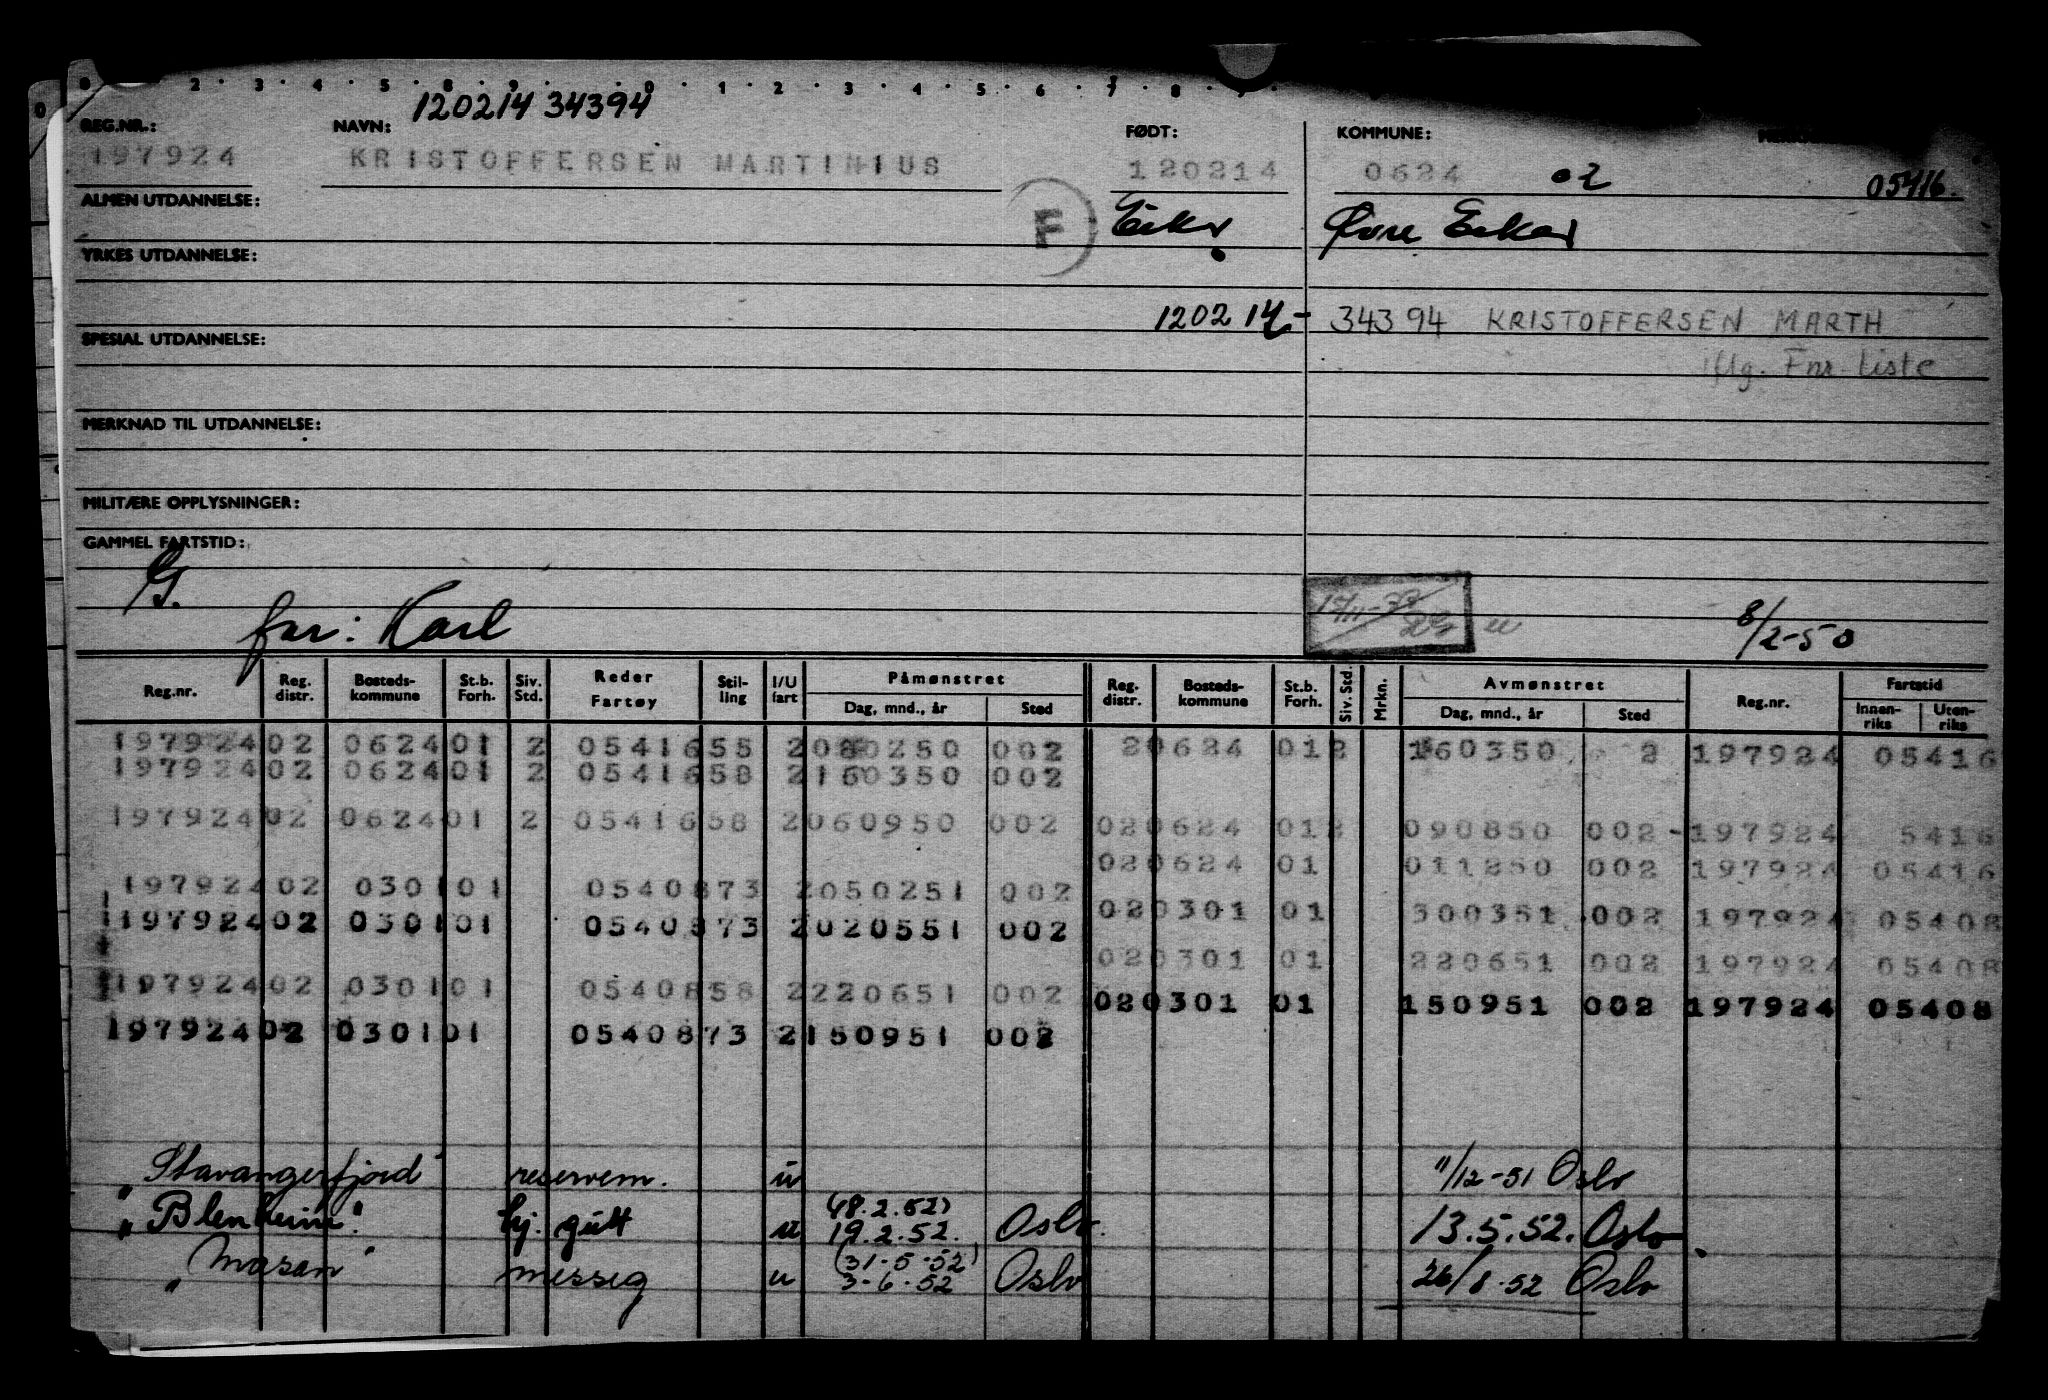 120214 34394
REG.NR.: NAVN: FØDT: KOMMUNE:
197924 KRISTOFFERSEN MARTINIUS 120214 0624 02 05416.
ALMEN UTDANNELSE: F Eiker Øvre Eiker
YRKES UTDANNELSE:
120214- 34394 KRISTOFFERSEN MARTH
SPESIAL UTDANNELSE:
iflg. Fnr. liste
MERKNAD TIL UTDANNELSE:
MILITÆRE OPPLYSNINGER:
GAMMEL FARTSTID:
G.
far: Karl 8/2-50
Reg.nr. Reg. distr. Bosteds-kommune St.b. Forh. Siv. Std. Reder Fartøy Stil-ling I/U fart Påmønstret Dag, mnd., år Sted Reg. distr. Bosteds-kommune St.b. Forh. Siv. Std. Mrkn. Avmønstret Dag, mnd., år Sted Reg.nr. Fartstid Innen-riks Uten-riks
197924 02 0624 01 2 05416 55 2 080250 002 2 0624 01 2 160350 2 197924 05416
197924 02 0624 01 2 05416 58 2 160350 002
197924 02 0624 01 2 05416 58 2 060950 002 02 0624 01 2 090850 002- 197924 5416
02 0624 01 011250 002 197924 05416
197924 02 0301 01 05408 73 2 050251 002
02 0301 01 300351 002 197924 05408
197924 02 0301 01 05408 73 2 020551 002
02 0301 01 220651 002 197924 05408
197924 02 0301 01 05408 58 2 220651 002
02 0301 01 150951 002 197924 05408
197924 02 0301 01 05408 73 2 150951 002
"Stavangerfjord" reservem. u 11/12-51 Oslo
"Blenheim". hj. gutt u (18.2.52) 19.2.52. Oslo. 13.5.52. Oslo
"Mosan" messeg u (31-5-52) 3-6-52 Oslo 26/8-52 Oslo